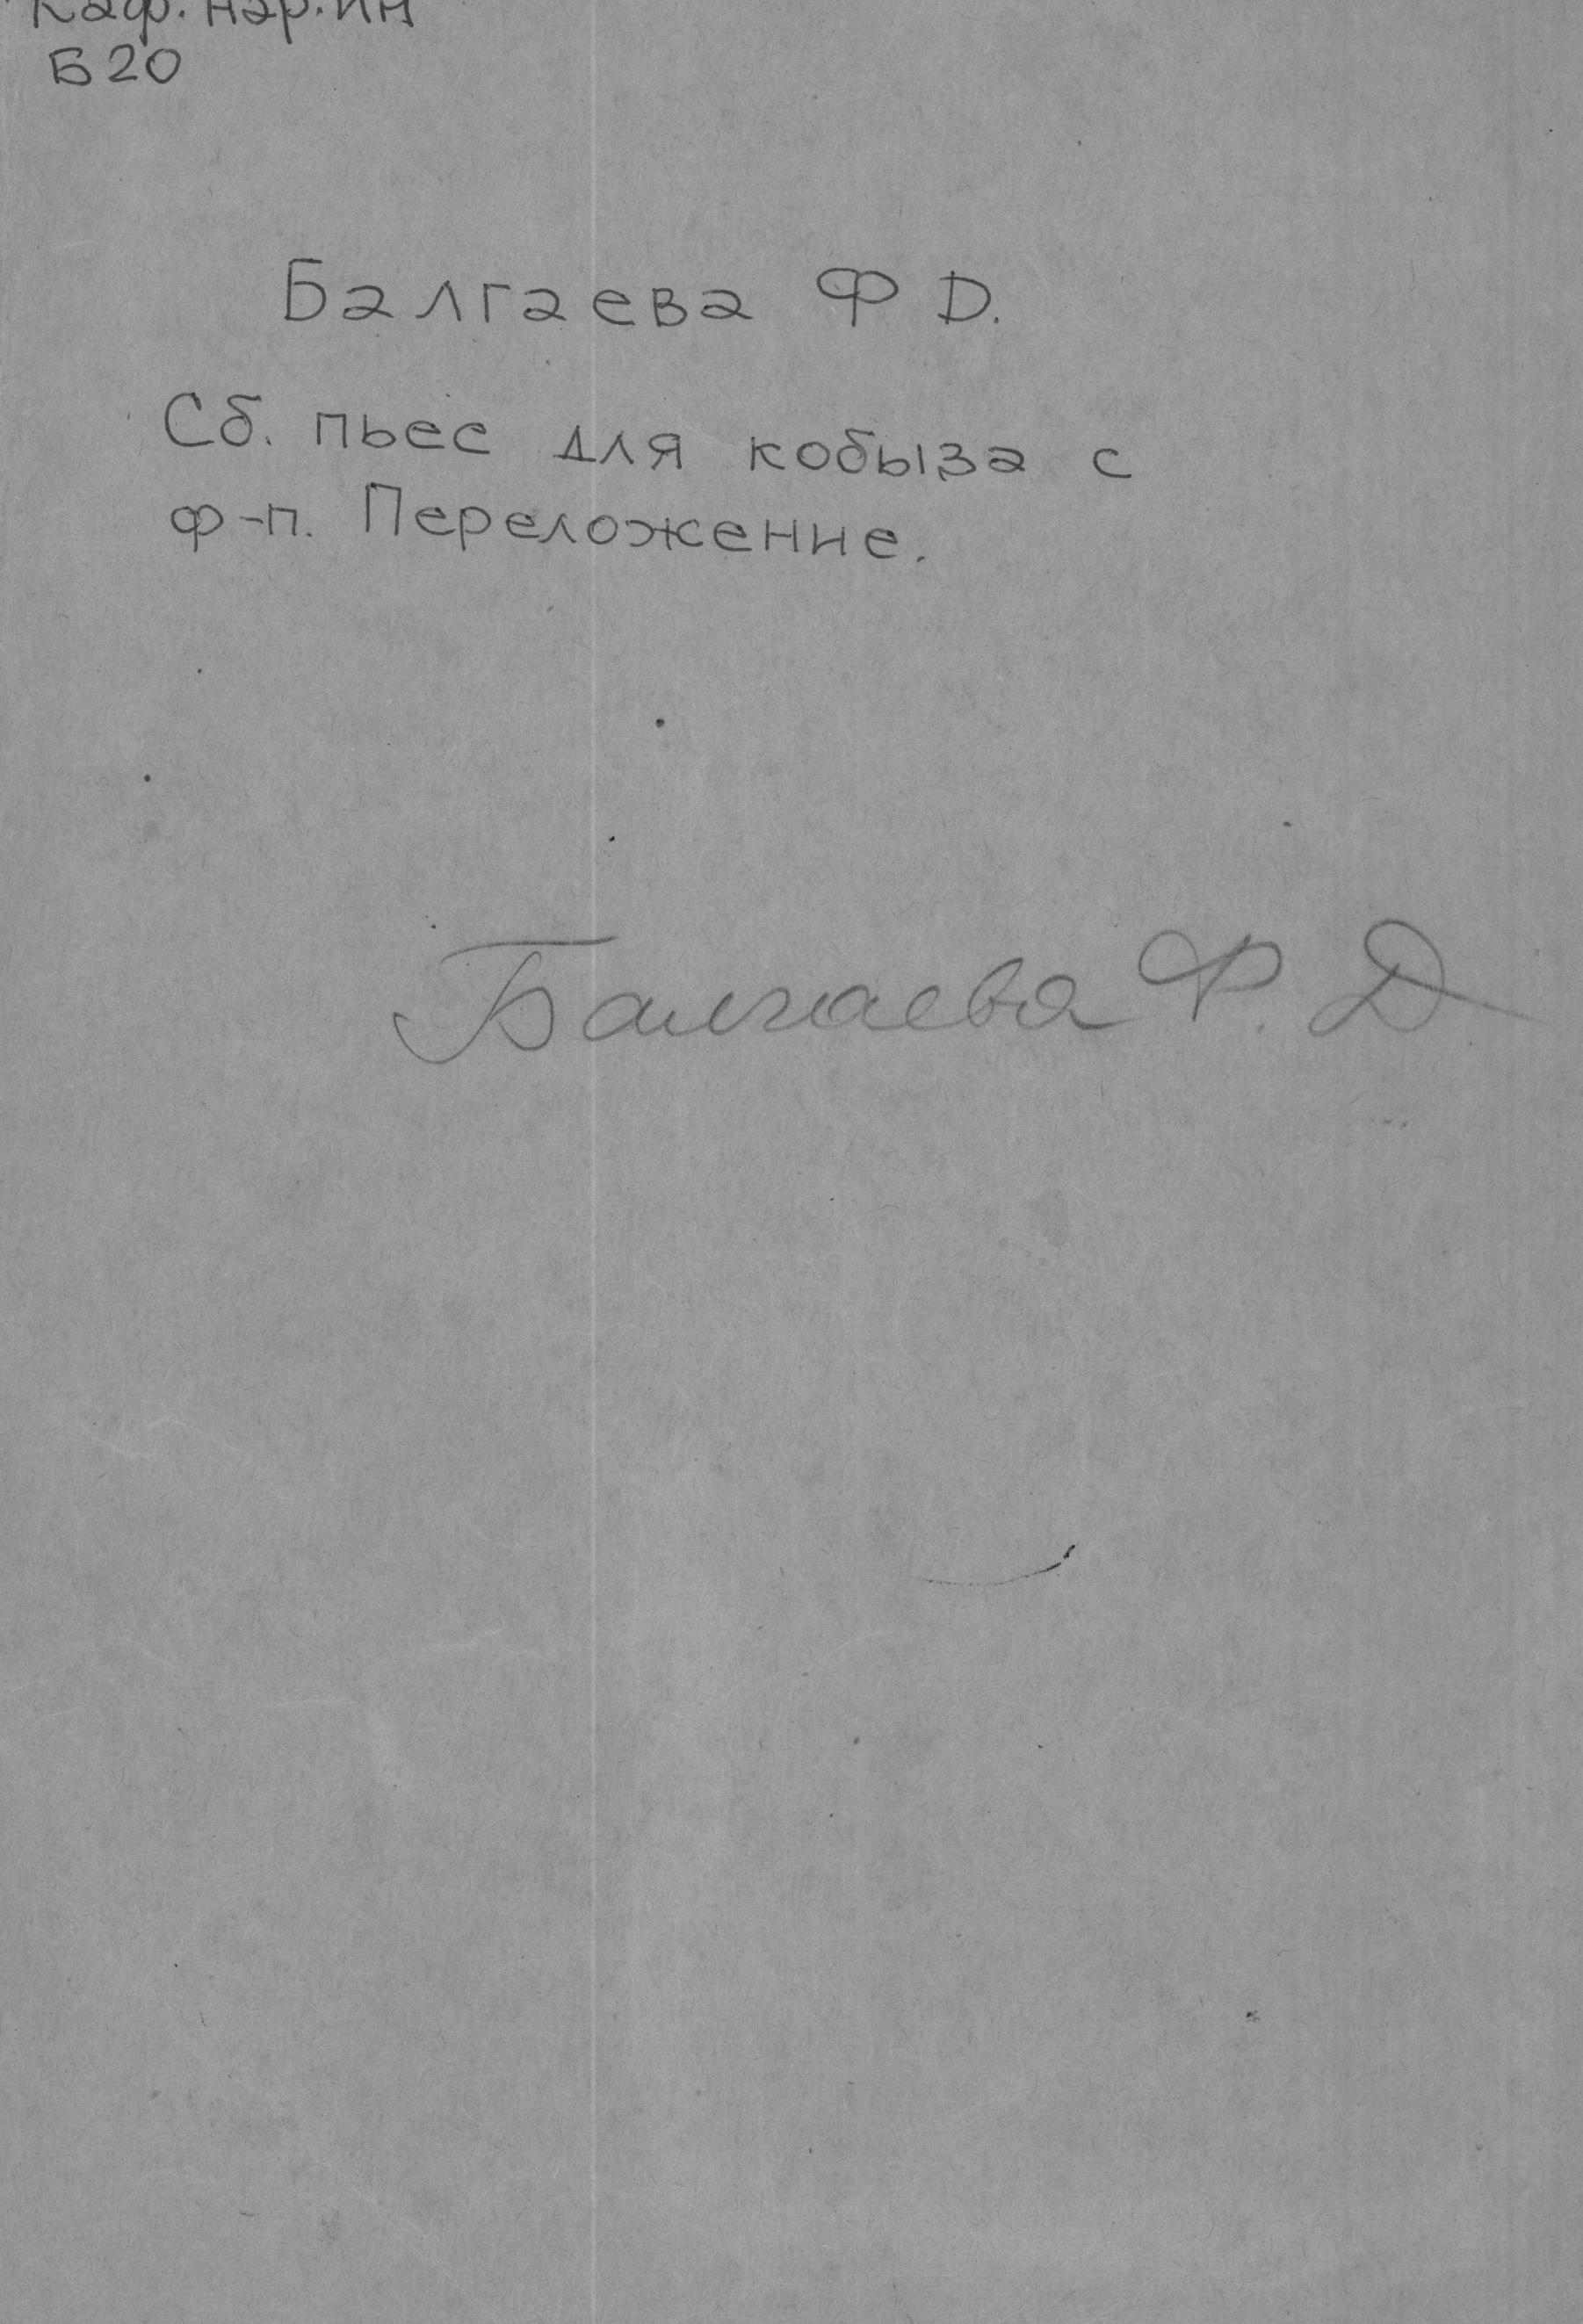 Каф. нар. ин
Б20
Балгаева Ф Д.
Сб. пьес для кобыза с
ф-п. Переложение.
Балгаева Ф. Д